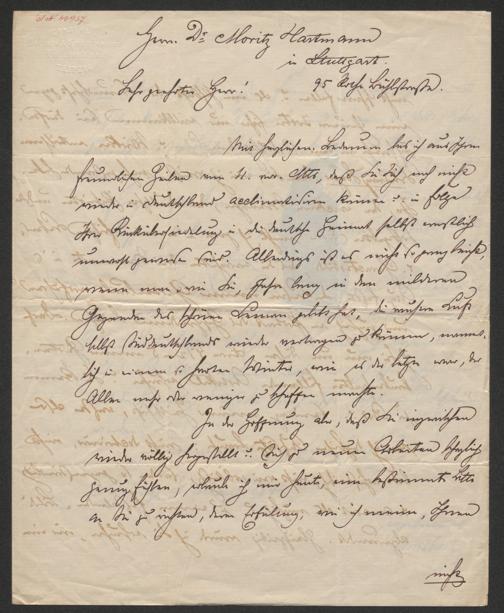 Herrn Dr Moritz Hartmann
in Stuttgart.
95 Rothe Bühlstraße.
Sehr geehrter Herr!
Mit herzlichem Bedauern las ich aus Ihren
freundlichen Zeilen vom 11. vor. Mts, daß Sie Sich noch nicht
wieder in Deutschland acclimatisiren können u. in Folge
Ihrer Rückübersiedelung in die deutsche Heimat selbst ernstlich
unwohl gewesen sind. Allerdings ist es nicht so ganz leicht,
wenn man, wie Sie, Jahre lang in den milderen
Gegenden des schönen Leman gelebt hat, die rauhere Luft
selbst Süddeutschlands wieder vertragen zu können, nament-
lich in einem so harten Winter, wie es der letzte war, der
Allen mehr oder weniger zu schaffen machte.
In der Hoffnung aber, daß Sie inzwischen
wieder völlig hergestellt u. Sich zu neuen Arbeiten
genug fühlen, erlaube ich mir heute, eine bestimmte Bitte
an Sie zu richten, deren Erfüllung, wie ich meine, Ihnen
nicht